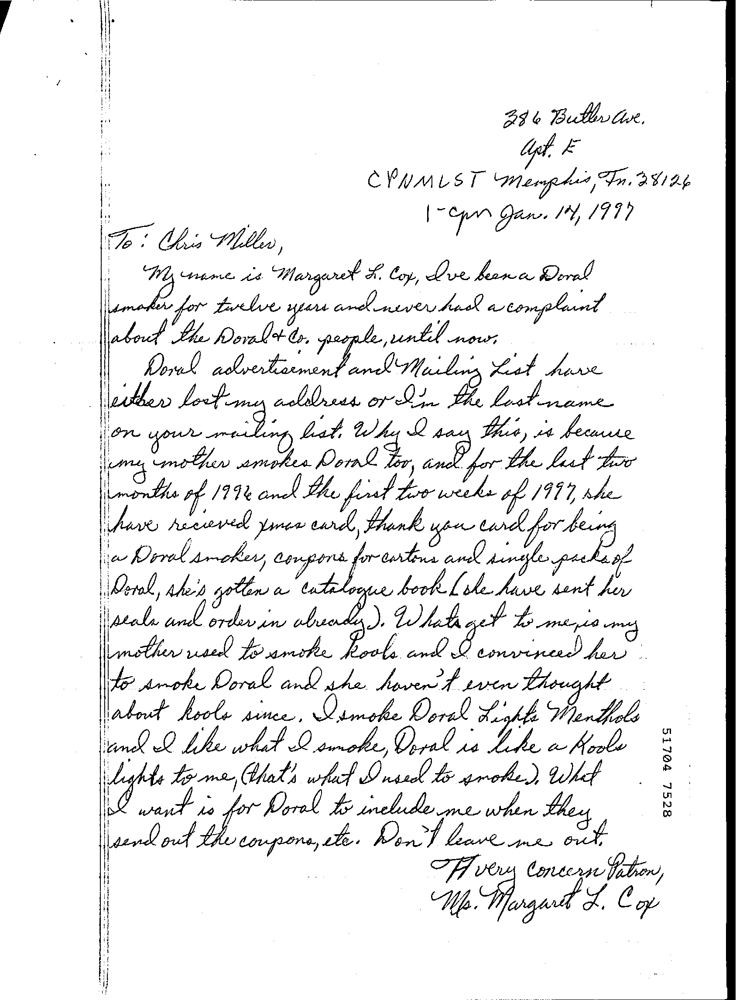 386 Butler Ave.
Apt. E
CPNMLST Memphis, Tn. 38126
1-cpn Jan. 14, 1997
To: Chris Miller,
My name is Margaret L. Cox, I've been a Doral
smoker for twelve years and never had a complaint
about the Doral & Co. people, until now.
Doral advertisement and Mailing List have
either lost my address or I'm the last name
on your mailing list. Why I say this, is because
my mother smokes Doral too, and for the last two
months of 1996 and the first two weeks of 1997, she
have recieved xmas card, thank you card for being
a Doral smoker, coupons for cartons and single packs of
Doral, she's gotten a catalogue book (she have sent her
seals and order in already). Whats get to me, is my
mother used to smoke kools and I convinced her
to smoke Doral and she haven't even thought
about kools since. I smoke Doral Lights Menthols
and I like what I smoke, Doral is like a Kools
lights to me, (that's what I used to smoke). What
I want is for Doral to include me when they
send out the coupons, etc. Don't leave me out.
A very Concern Patron,
Ms. Margaret L. Cox
51704 7528